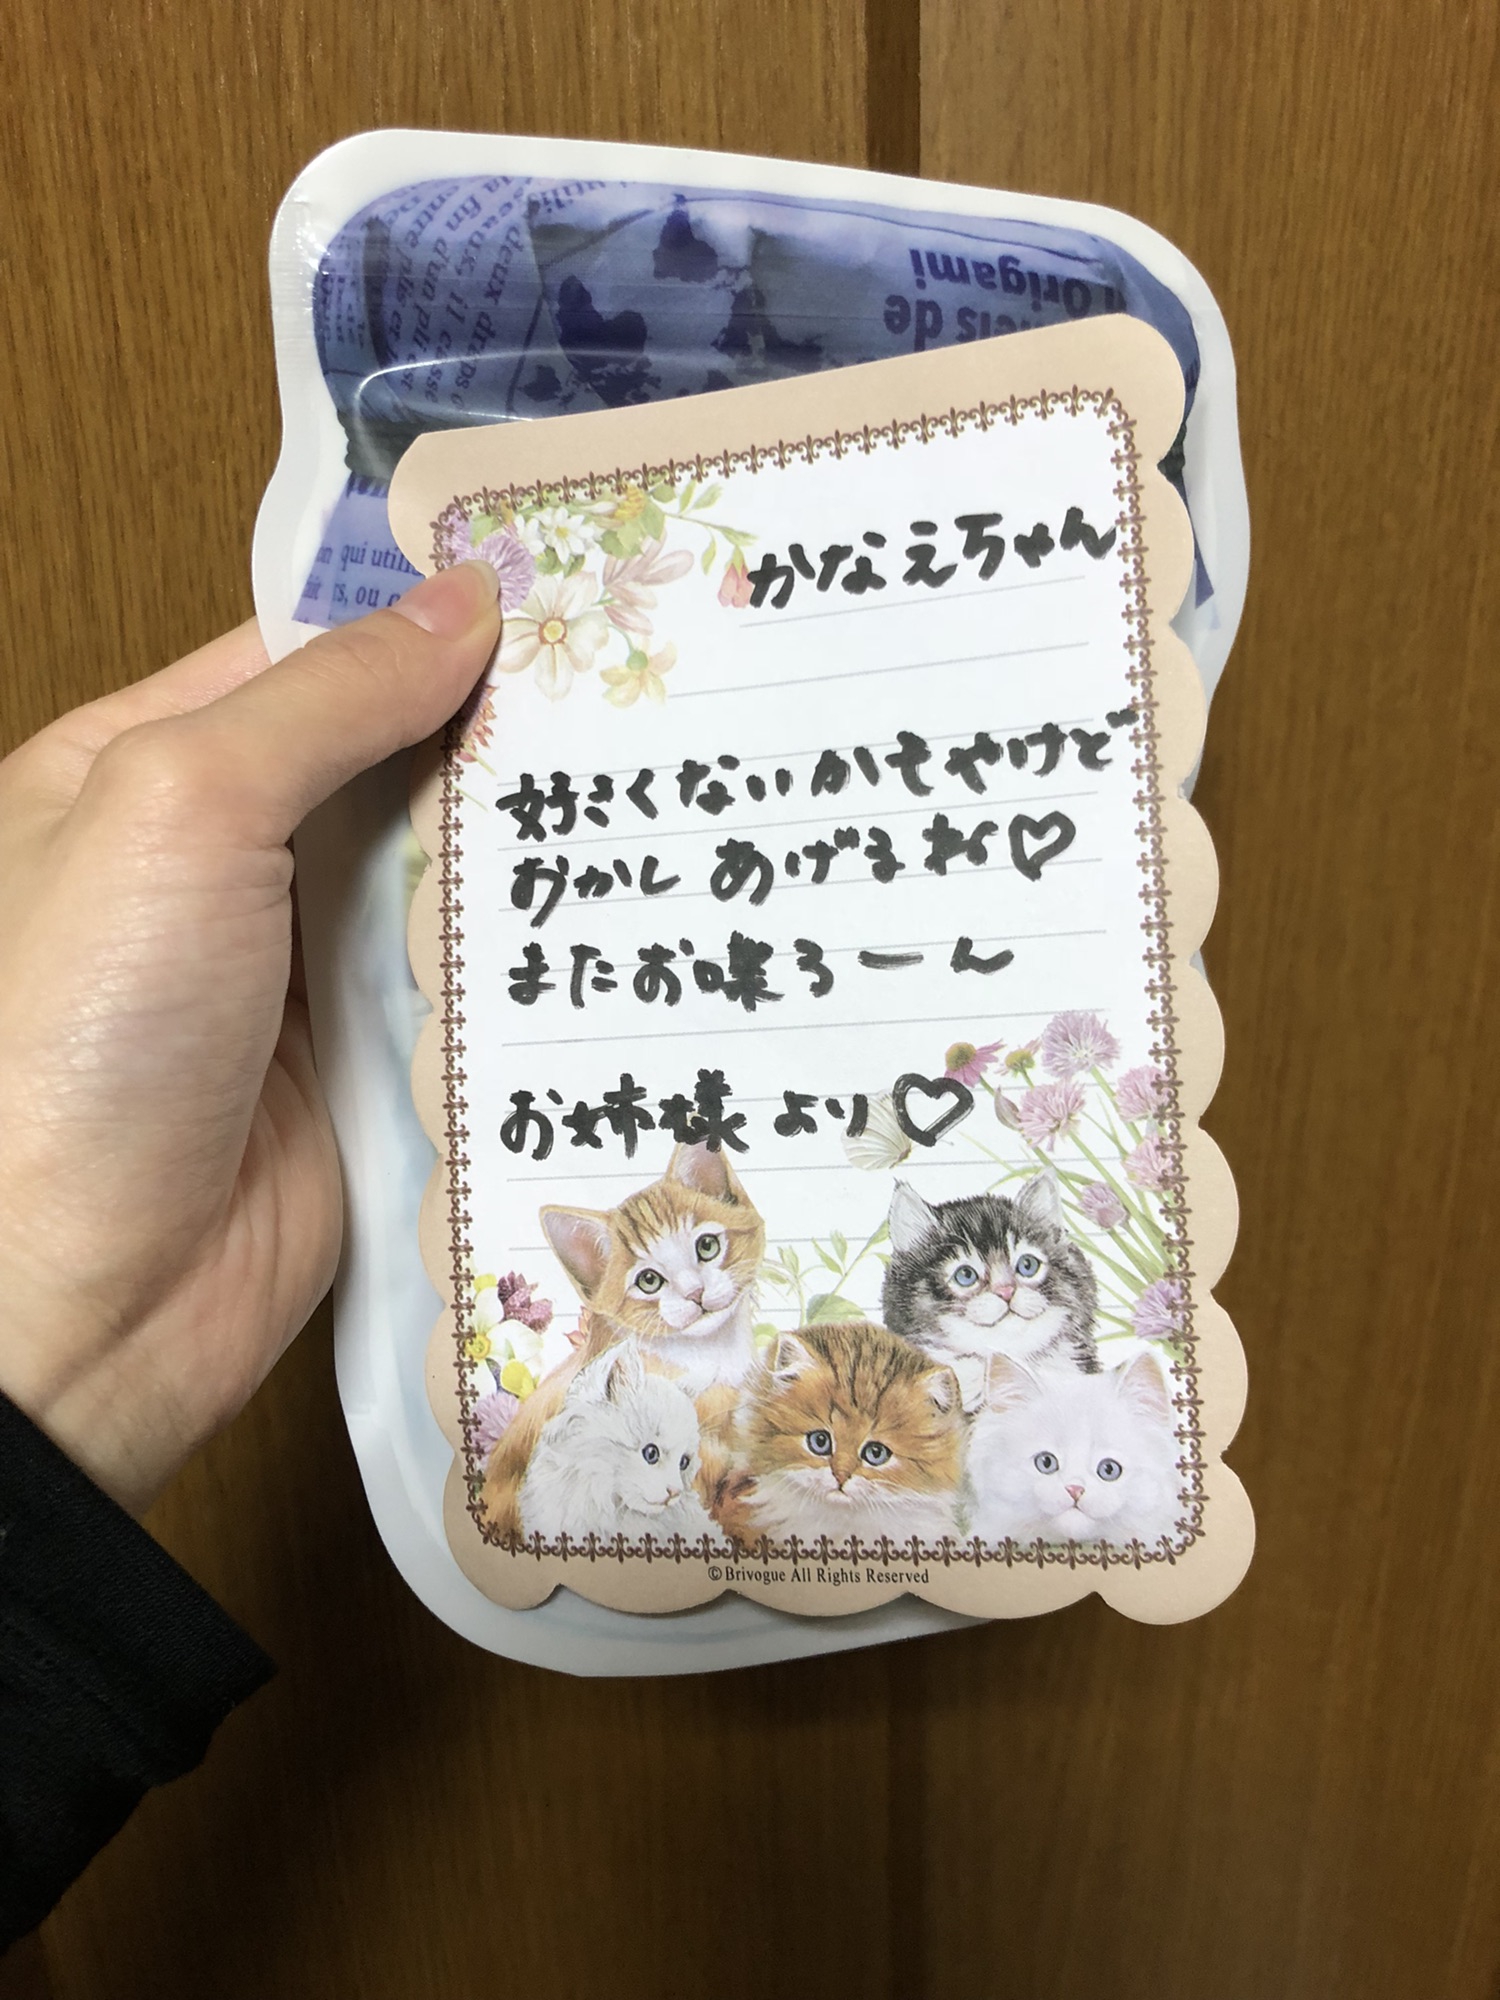 n Origami
neis de
la fin d'un pli
deux draps
seaux, il
utili
qui utili
rs, ou
かなえちゃん
好きくないかもやけど
おかしあげるね♡
またお喋ろーん
お姉様より♡
©Brivogue All Rights Reserved